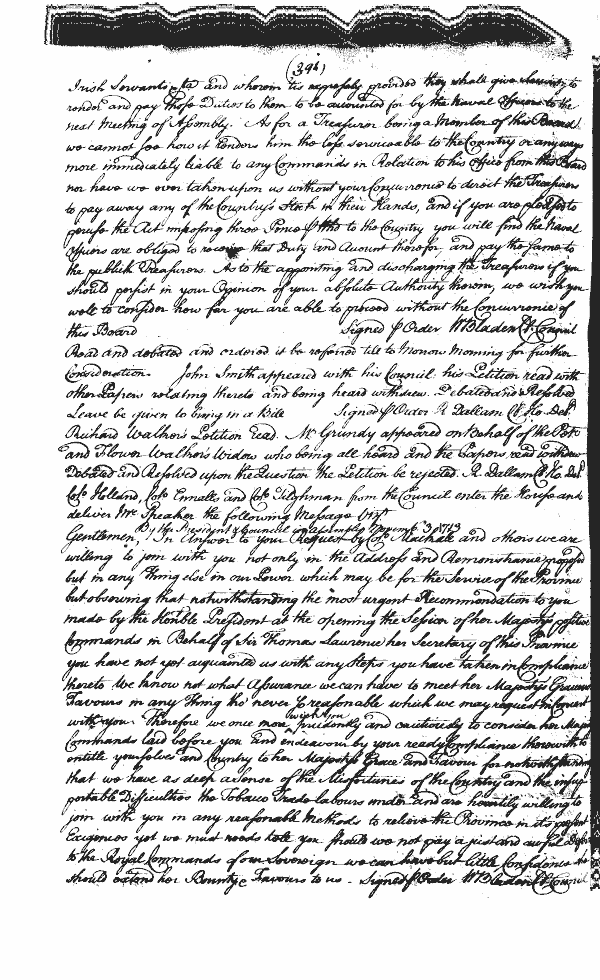 (394)
Irish Servants &ca and wherein tis expressly provided they shall give to
render and pay those Duties to them to be accounted for by the Naval Officers to the
next Meeting of Assembly. As for a Treasurer being a Member of this Board
we cannot see how it renders him the less serviceable to the Country or any ways
more immediately liable to any Commands in Relation to his Office from this Board
nor have we ever taken upon us without your Concurrence to direct the Treasurers
to pay away any of the Country's Stock in their Hands, and if you are pleased to
peruse the Act imposing three Pence p to the Country you will find the Naval
Officers are obliged to receive that Duty and Account therefor, and pay the same to
the publick Treasurers. As to the appointing and discharging the Treasurers if you
should persist in your Opinion of your absolute Authority therein, we wish you
well to consider how far you are able to proceed without the Concurrence of
this Board Signed p Order W Bladen Cl Council
Read and debated and ordered it be referred till to Morrow Morning for further
Consideration. John Smith appeared with his Council his Petition read with
other Papers relating thereto and being heard withdrew. Debated and Resolved
Leave be given to bring in a Bill Signed p Order R Dallam Cl Ho Del
Richard Walker's Petition read. Mr Grundy appeared on behalf of the Petr
and Flower Walker's Widow who being all heard and the Papers read withdrew
Debated and Resolved upon the Question the Petition be rejected. R. Dallam Cl Ho. Del.
Colo Holland, Colo Ennalls and Colo Tilghman from the Council enter the House and
deliver Mr Speaker the following Message Vizt
By the President & Council in assembly Novemr 3d 1743
Gentlemen, In Answer to your Request by Colo Mackall and others we are
willing to join with you not only in the Address and Remonstrance proposed
but in any Thing else in our Power which may be for the Service of the Province
but observing that notwithstanding the most urgent Recommendation to you
made by the Honble President at the opening the Session of her Majestys positive
Commands in Behalf of Sir Thomas Laurence her Secretary of this Province
you have not yet acquainted us with any Steps you have taken in Compliance
thereto We know not what Assurance we can have to meet her Majestys Gracious
Favours in any Thing tho' never so reasonable which we may request in Consort
with you. Therefore we once more wish you prudently and cautiously to consider her Majtys
Commands laid before you and endeavour by your ready Compliance therewith to
entitle yourselves and Country to her Majestys Grace and Favour for notwithstanding
that we have as deep a Sense of the Misfortunes of the Country and the insup-
portable Difficulties the Tobacco Trade labours under and are heartily willing to
join with you in any reasonable Methods to relieve the Province in its present
Exigencies yet we must needs tell you should we not pay a just and awful Defer
to the Royal Commands of our Sovereign we can have but little Confidence she
should extend her Bounty & Favours to us. Signed p Order W Bladen Cl Council